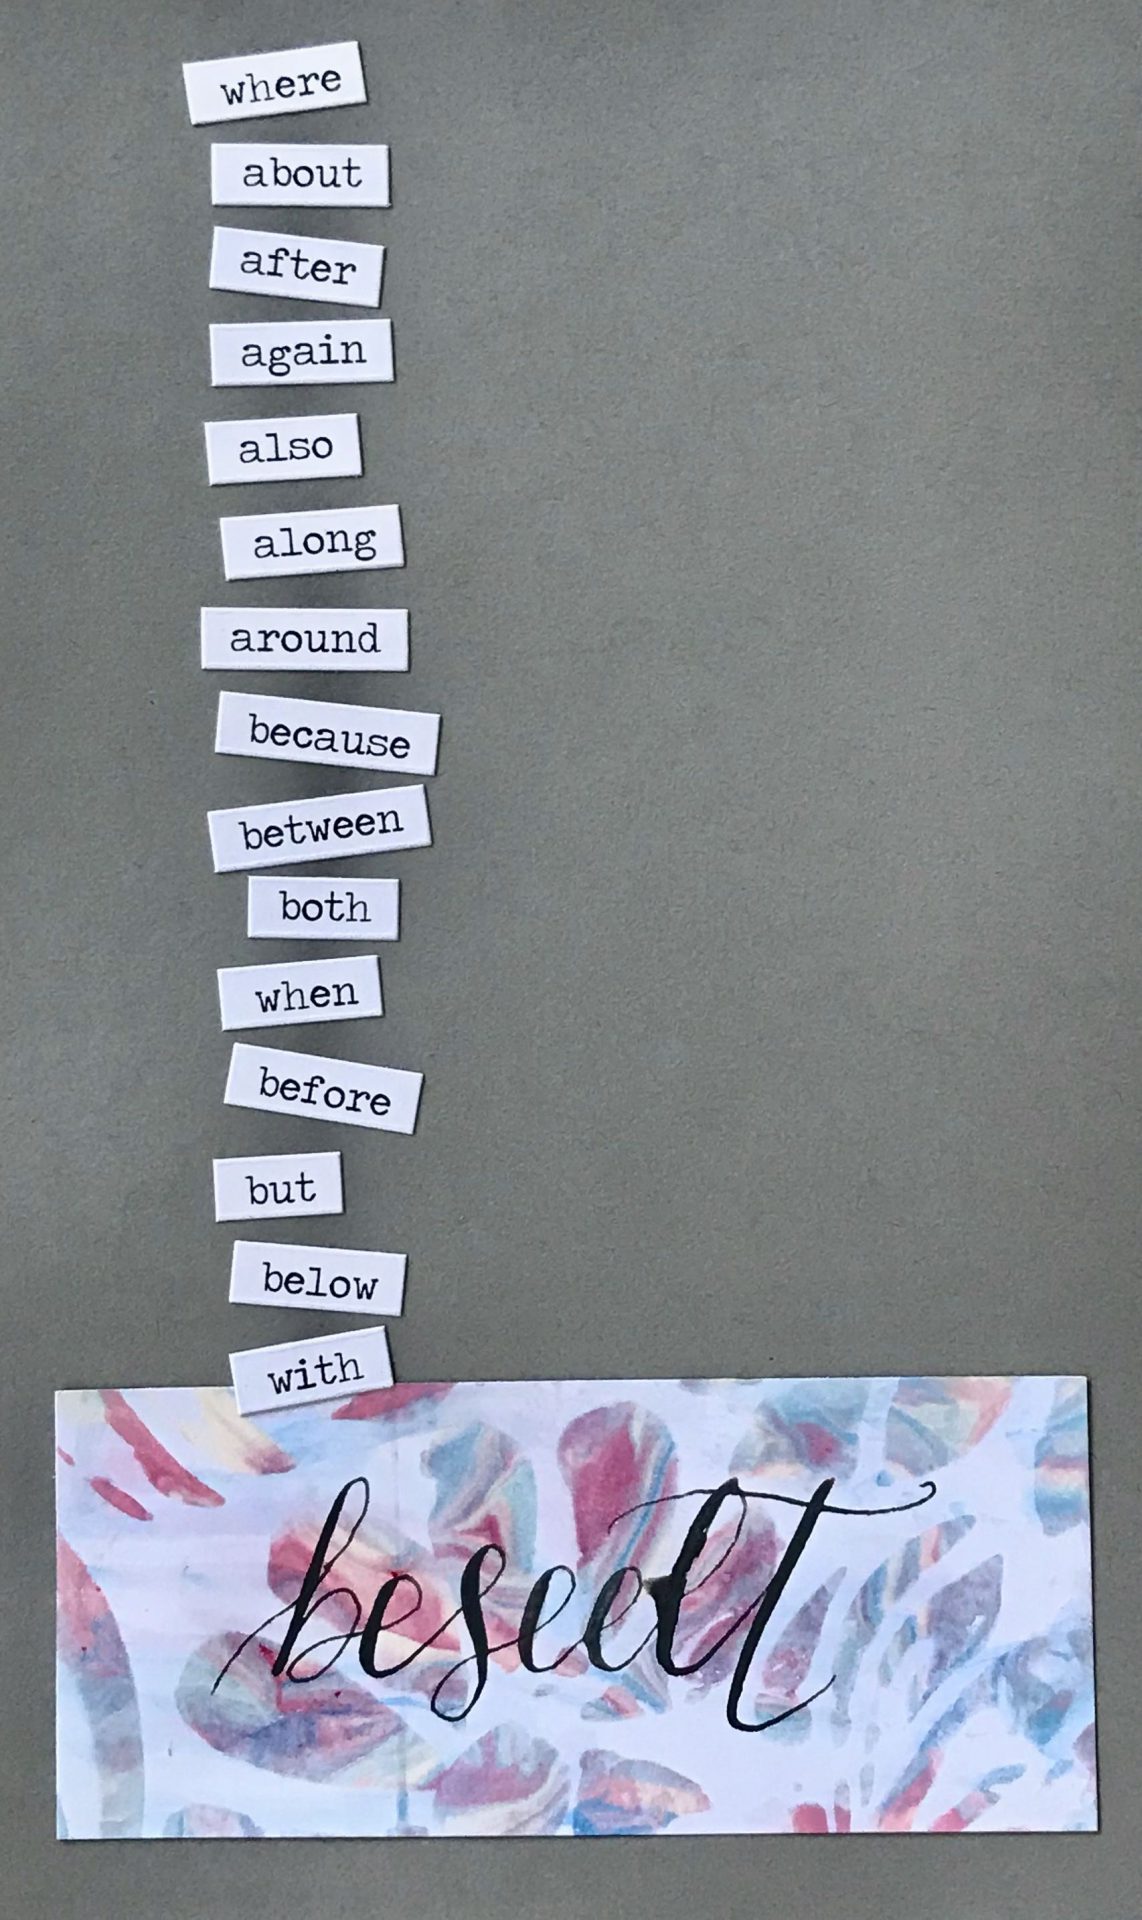 where
about
after
again
also
along
around
because
between
both
when
before
but
below
with
beseelt